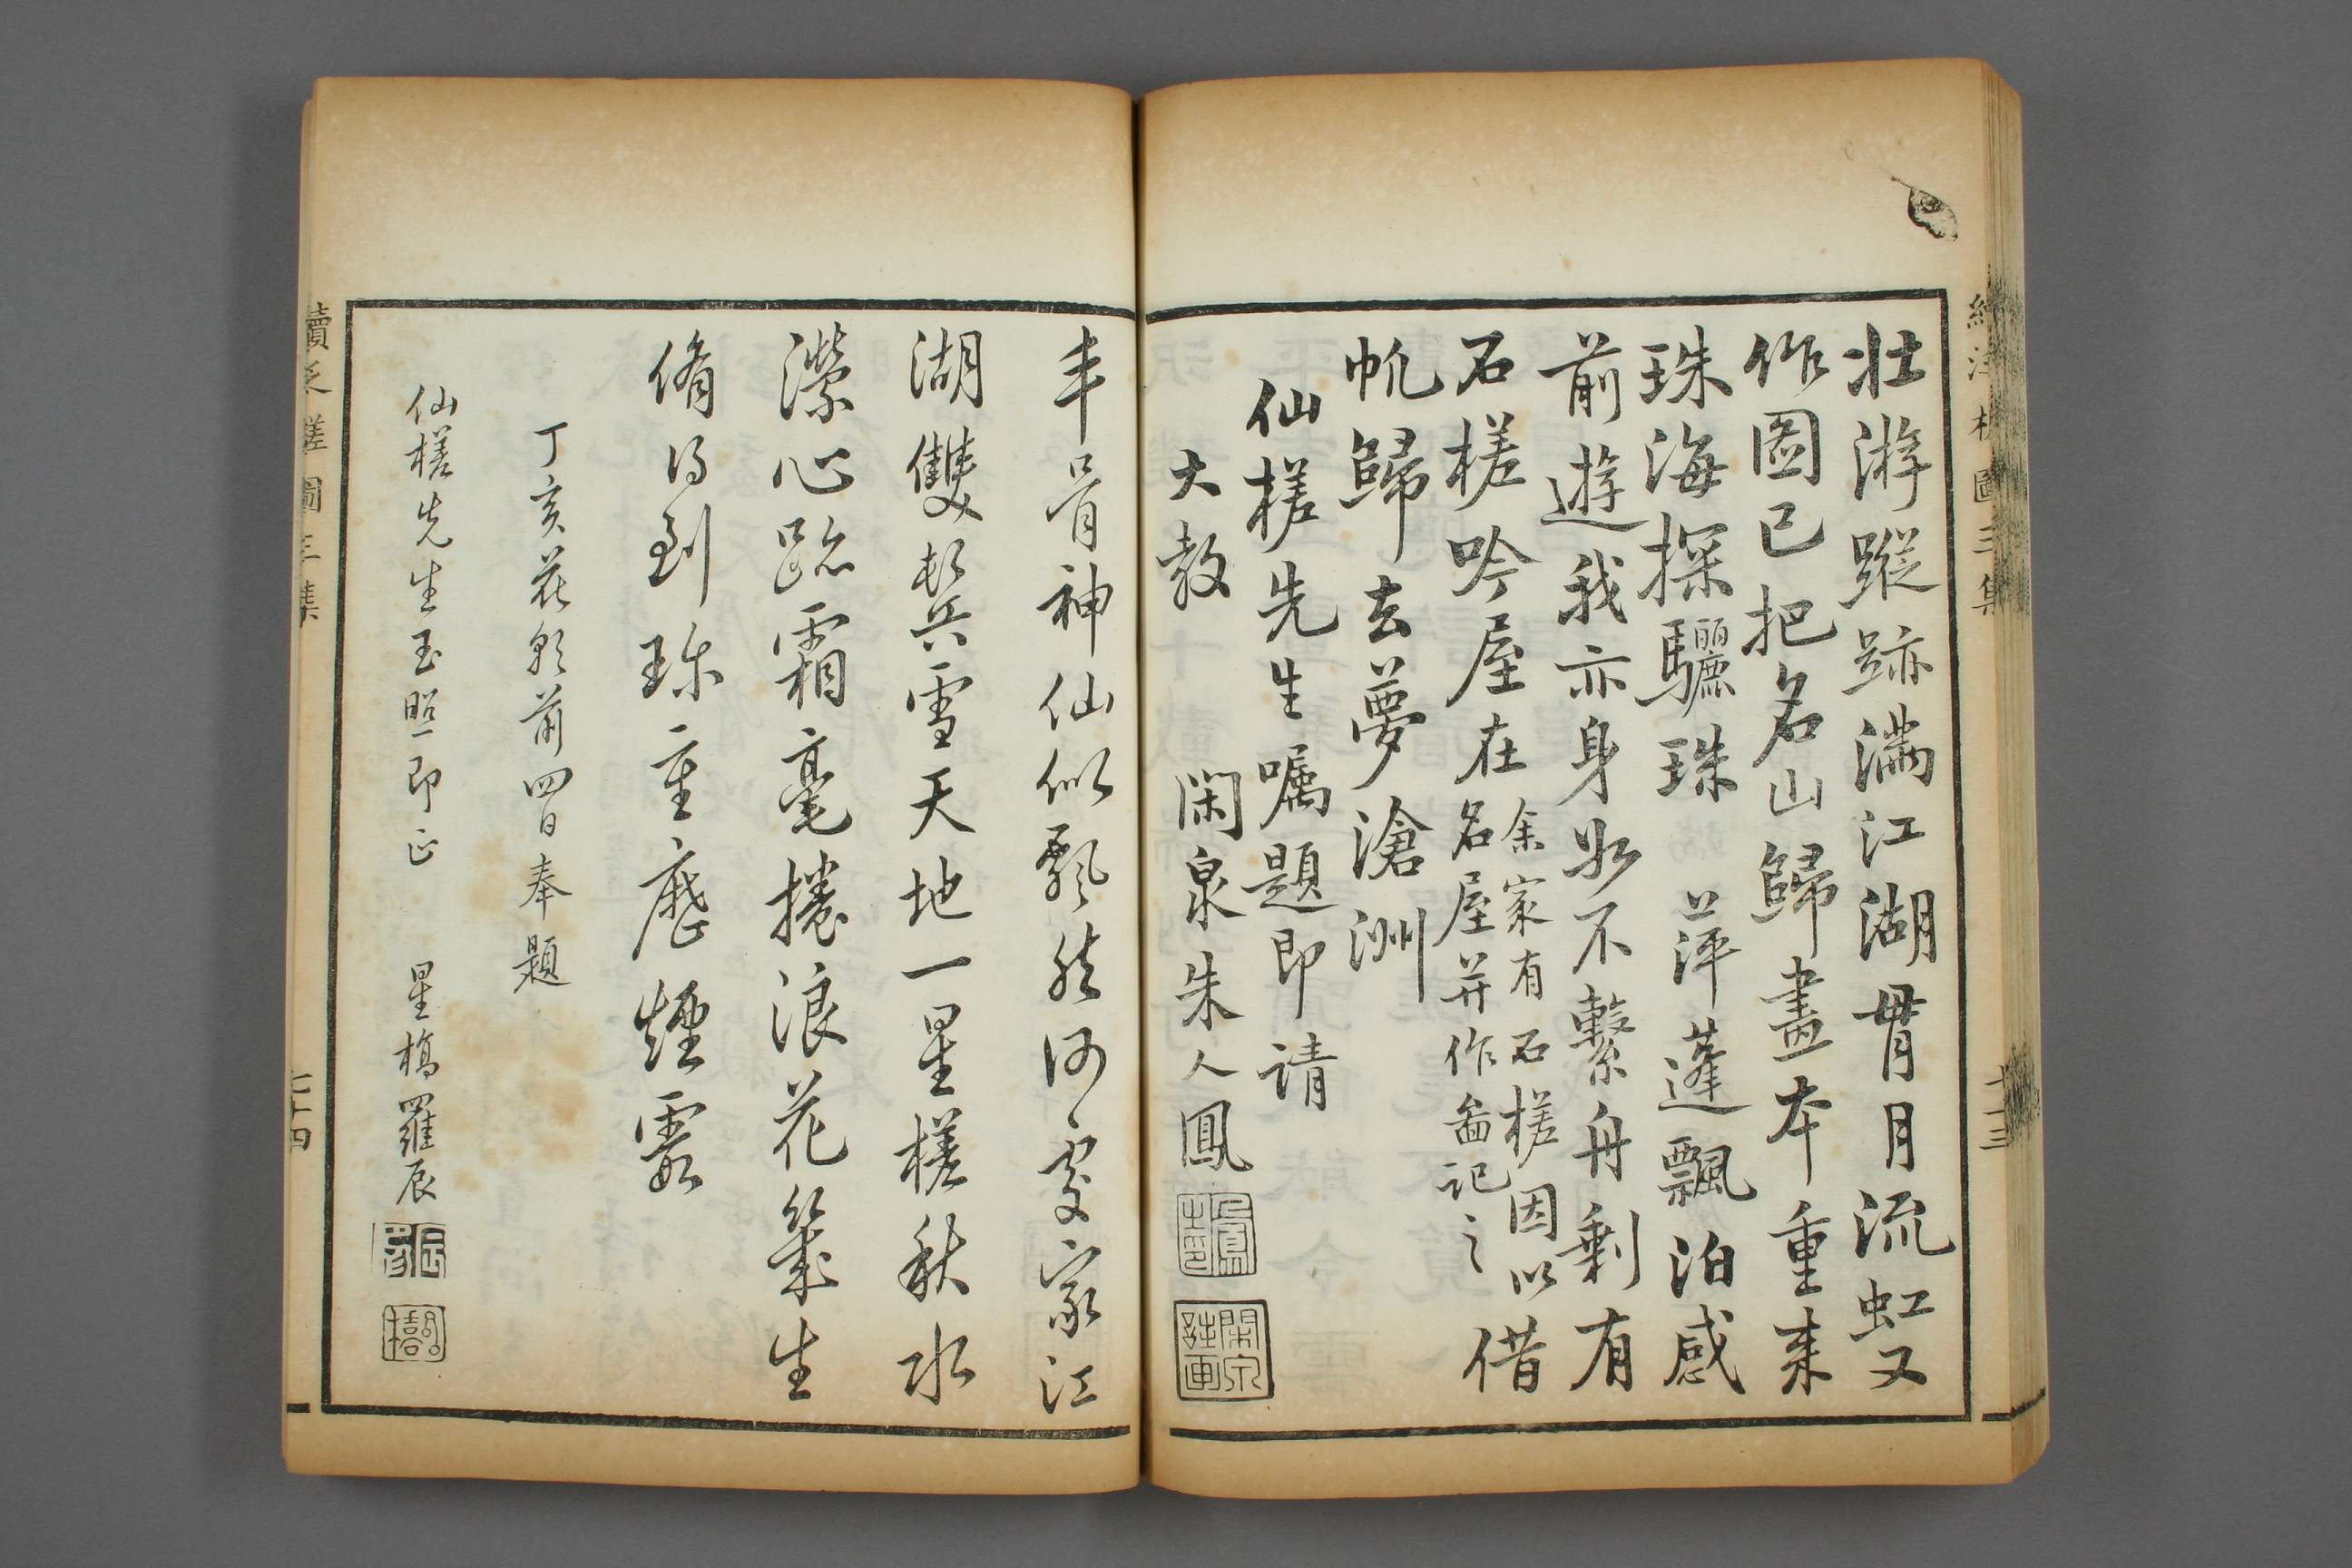 壯游蹤跡滿江湖貫月流虹又
作圖已把名山歸畫本重来
珠海探驪珠 萍蓬飄泊感
前遊我亦身如不繫舟剩有
石槎吟屋在
余家有石槎因以
名屋并作啚記之
借
帆歸去夢滄洲
仙槎先生嘱題即请
大教 閑泉朱人鳳
丰骨神仙似飄然何處家江
湖雙鬂雪天地一星槎秋水
瀠心跡霜毫捲浪花幾生
脩得到珎重歷煙霞
丁亥花朝前四日奉題
仙槎先生玉照即正 星橋羅辰
續泛槎圖三集
七十四